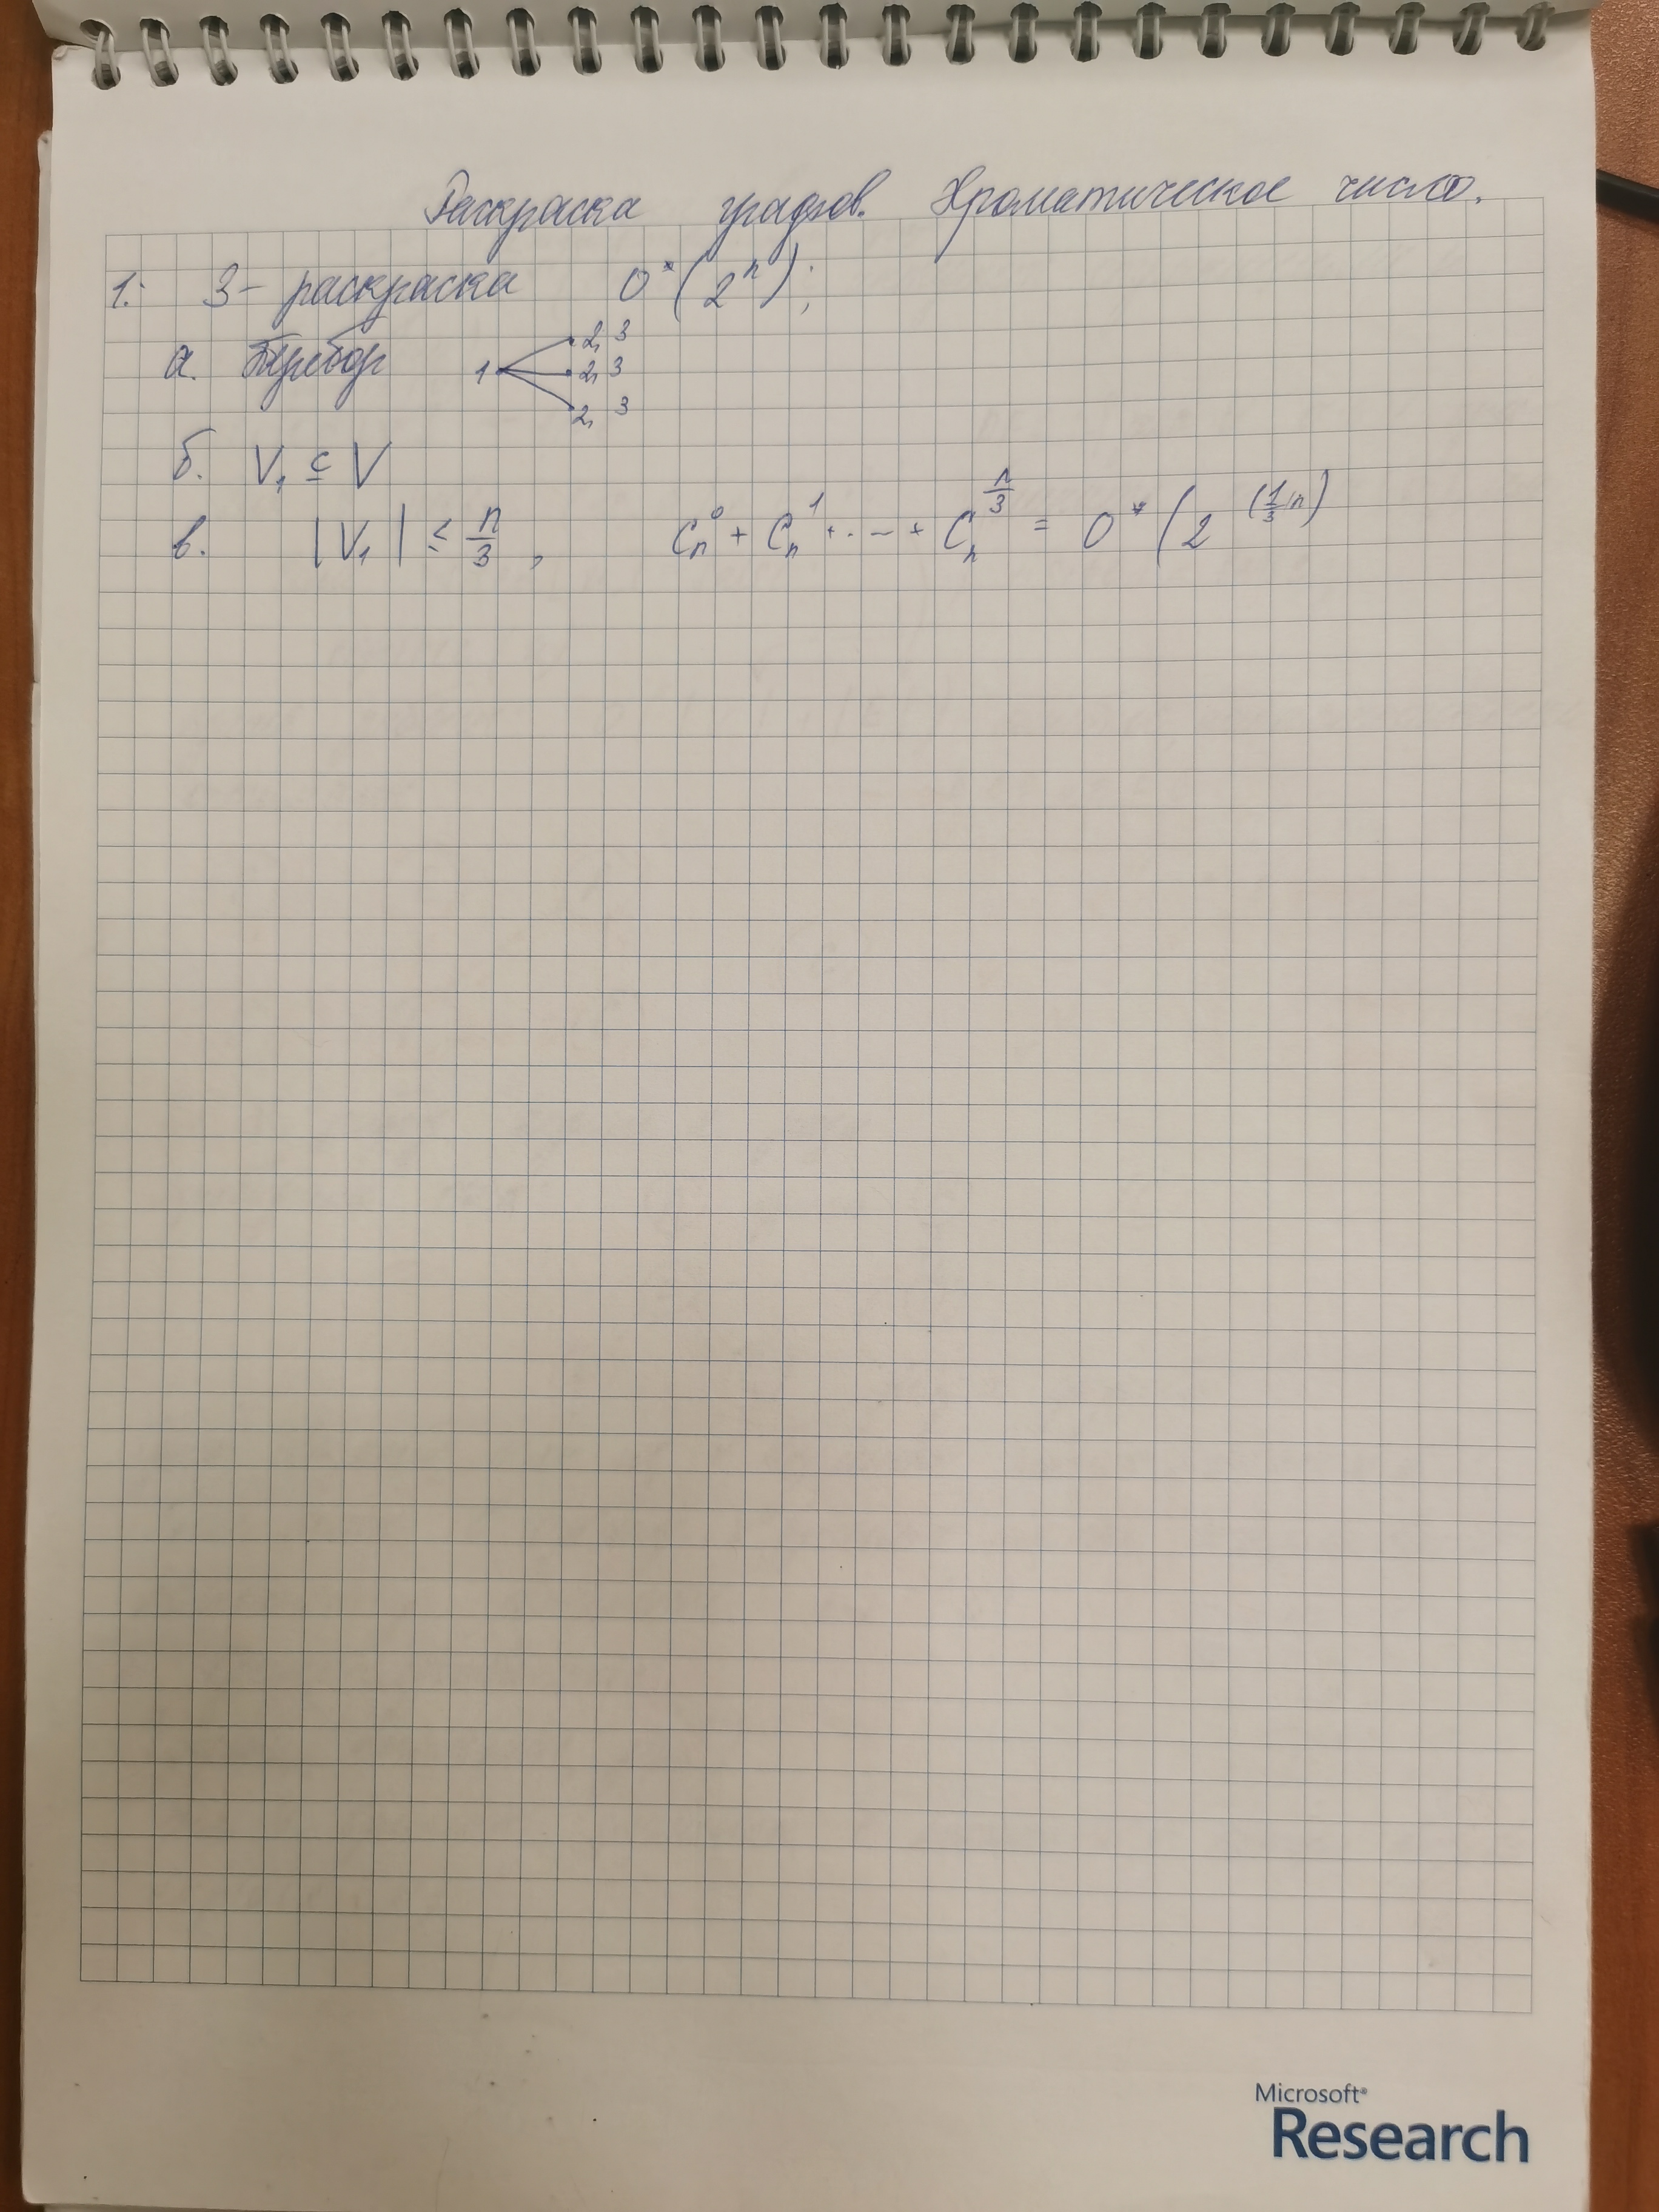 Раскраска графов. Хроматическое число.
1. 3-раскраска O*(2ⁿ);
а. Перебор 1 2, 3
2, 3
2, 3
б. V₁ ⊆ V
в. |V₁| ≤ n/3, Cₙ⁰ + Cₙ¹ + ... + Cₙ^(n/3) = O*(2^((1/3)n)
Microsoft®
Research